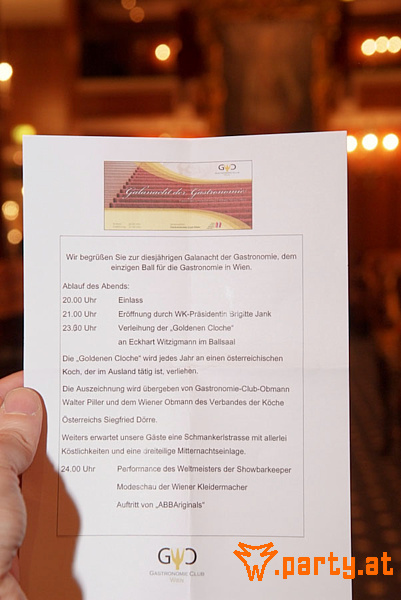 GVC
Galanacht der Gastronomie
Wir begrüßen Sie zur diesjährigen Galanacht der Gastronomie, dem
einzigen Ball für die Gastronomie in Wien.
Ablauf des Abends:
20.00 Uhr Einlass
21.00 Uhr Eröffnung durch WK-Präsidentin Brigitte Jank
23.30 Uhr Verleihung der „Goldenen Cloche"
an Eckhart Witzigmann im Ballsaal
Die „Goldenen Cloche" wird jedes Jahr an einen österreichischen
Koch, der im Ausland tätig ist, verliehen.
Die Auszeichnung wird übergeben von Gastronomie-Club-Obmann
Walter Piller und dem Wiener Obmann des Verbandes der Köche
Österreichs Siegfried Dörre.
Weiters erwartet unsere Gäste eine Schmankerlstrasse mit allerlei
Köstlichkeiten und eine dreiteilige Mitternachtseinlage.
24.00 Uhr Performance des Weltmeisters der Showbarkeeper
Modeschau der Wiener Kleidermacher
Auftritt von „ABBAriginals"
GVC
GASTRONOMIE CLUB
WIEN
.party.at